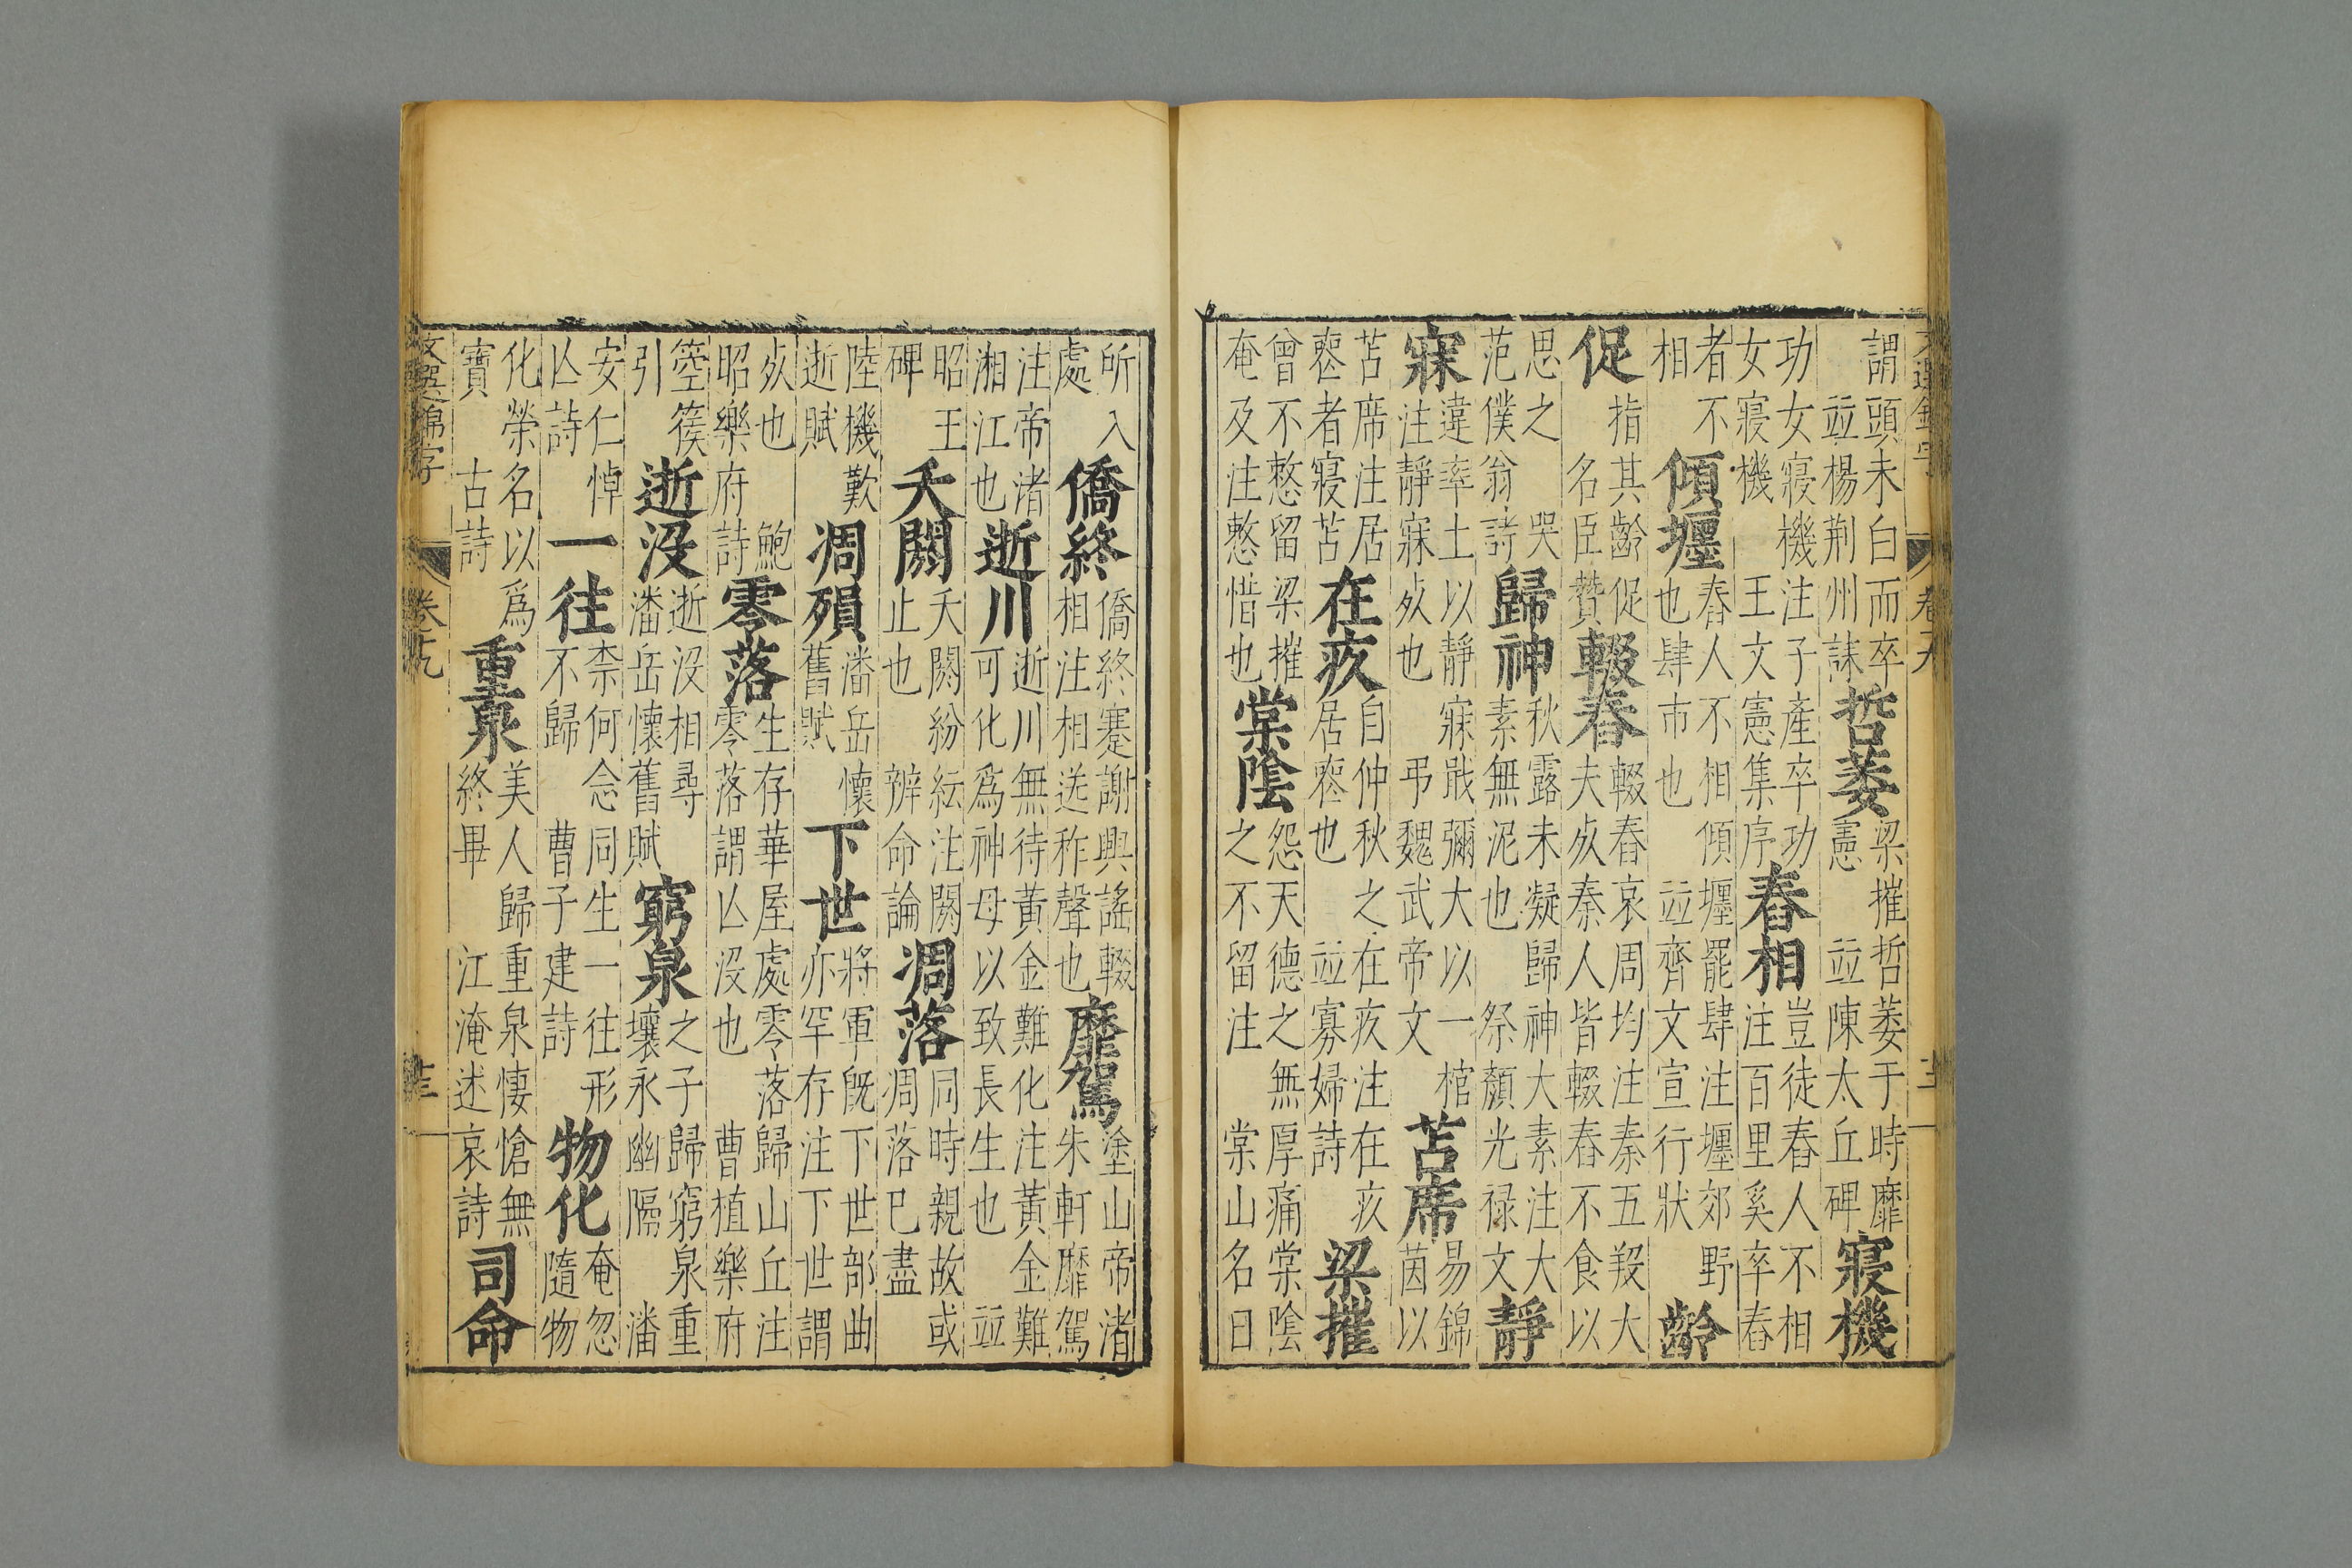 謂頭未白而卒
竝楊荆州誄
哲萎
梁摧哲萎于時靡
憲 竝陳太丘碑
寢機
功女寢機注子產卒功
女寢機 王文憲集序
舂相
豈徒舂人不相
注百里奚卒舂
者不
相
傾壥
舂人不相傾壥罷肆注壥郊野
也肆市也 竝齊文宣行狀
齡
促
指其齡促
名臣贊
輟舂
輟舂哀周均注秦五羖大
夫歿秦人皆輟舂不食以
思之 哭
范僕翁詩
歸神
秋露未凝歸神大素注大
素無泥也 祭顏光祿文
靜
寐
違率土以靜寐戢彌大以一棺
注靜寐歿也 弔魏武帝文
苫席
易錦
茵以
苫席注居
喪者寢苫
在疚
自仲秋之在疚注在疚
居喪也 竝寡婦詩
梁摧
曾不憗留梁摧
奄及注憗惜也
棠陰
怨天德之無厚痛棠陰
之不留注 棠山名日
所入
處
僑終
僑終蹇謝興謠輟
相注相送秨聲也
靡駕
塗山帝渚
朱軒靡駕
注帝渚
湘江也
逝川
逝川無待黃金難化注黃金難
可化爲神母以致長生也 竝
昭王
碑
夭閼
夭閼紛紜注閼
止也 辨命論
凋落
同時親故或
凋落已盡
陸機歎
逝賦
凋殞
潘岳懷
舊賦
下世
將軍旣下世部曲
亦罕存注下世謂
歿也 鮑
昭樂府詩
零落
生存華屋處零落歸山丘注
零落謂亾沒也 曹植樂府
箜篌
引
逝没
逝没相尋
潘岳懷舊賦
窮泉
之子歸窮泉重
壤永幽隔 潘
安仁悼
亾詩
一往
柰何念同生一往形
不歸 曹子建詩
物化
奄忽
隨物
化榮名以爲
寶 古詩
重泉
美人歸重泉悽愴無
終畢 江淹述哀詩
司命
文選錦字 卷十九